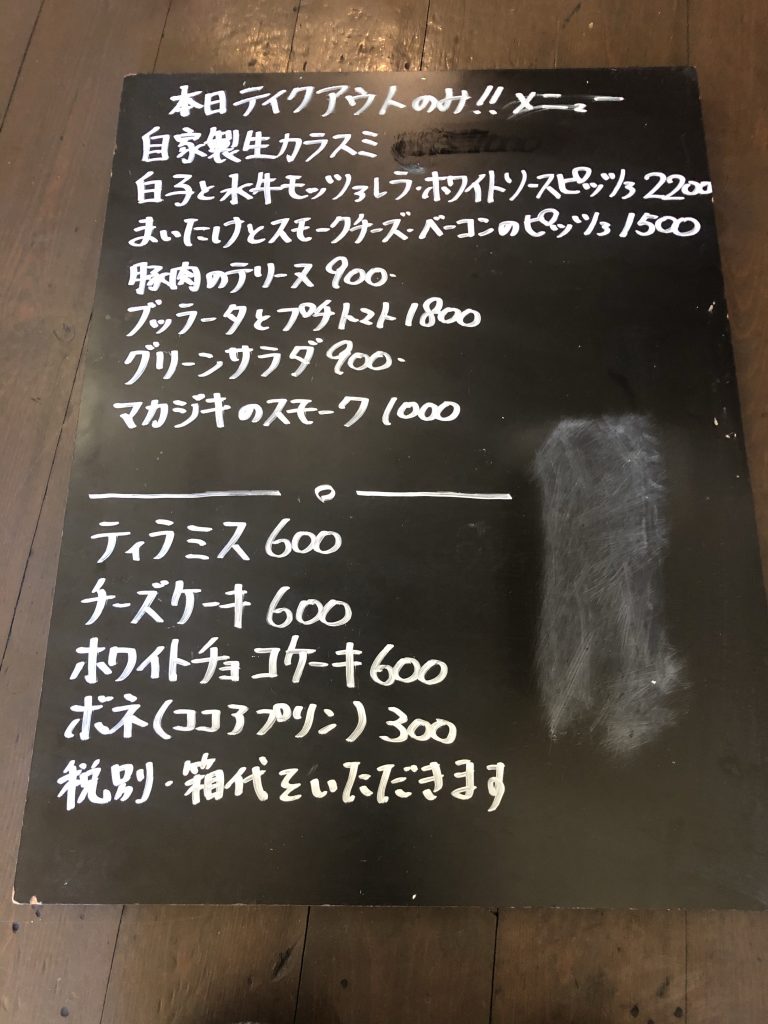 本日テイクアウトのみ!! メニュー
自家製生カラスミ
白子と水牛モッツァレラ・ホワイトソースピッツァ 2200
まいたけとスモークチーズ・ベーコンのピッツァ 1500
豚肉のテリーヌ 900-
ブッラータとプチトマト 1800
グリーンサラダ 900-
マカジキのスモーク 1000
ティラミス 600
チーズケーキ 600
ホワイトチョコケーキ 600
ボネ(ココアプリン) 300
税別・箱代をいただきます